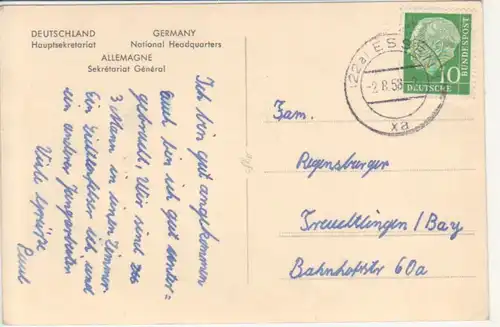 DEUTSCHLAND
Hauptsekretariat
GERMANY
National Headquarters
ALLEMAGNE
Sekrétariat Général
Ich bin gut angekommen
auch bin ich gut unter=
gebracht. Wir sind zu
3 Mann in einem Zimmer
Ein Zeltenfahrer ich und
ein anderer Jungarbeiter
Viele Grüsse
Paul
(22a) ESSEN
-2.8.56
xa
10
DEUTSCHE
BUNDESPOST
Fam.
Regensburger
Treuchtlingen/Bay
Bahnhofstr 60a